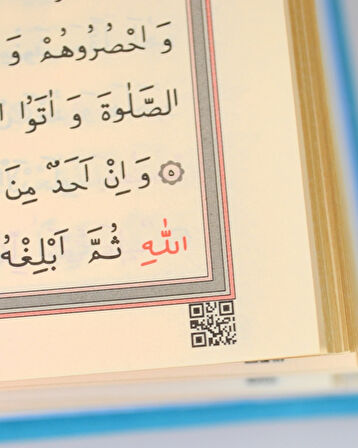 وَ احْصُرُوهُمْ وَ
الصَّلٰوةَ وَ اٰتَوُا
٥ وَ اِنْ اَحَدٌ مِنَ
اللّٰهِ ثُمَّ اَبْلِغْهُ